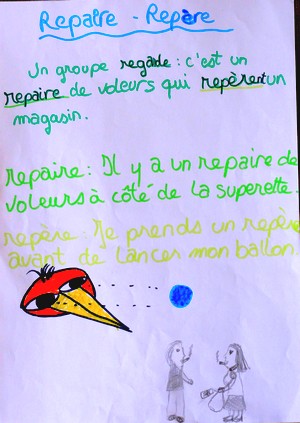 Repaire - Repère
Un groupe regarde : c'est un
repaire de voleurs qui repèrent un
magasin.
repaire : Il y a un repaire de
voleurs à côté de la superette.
repère : Je prends un repère
avant de lancer mon ballon.